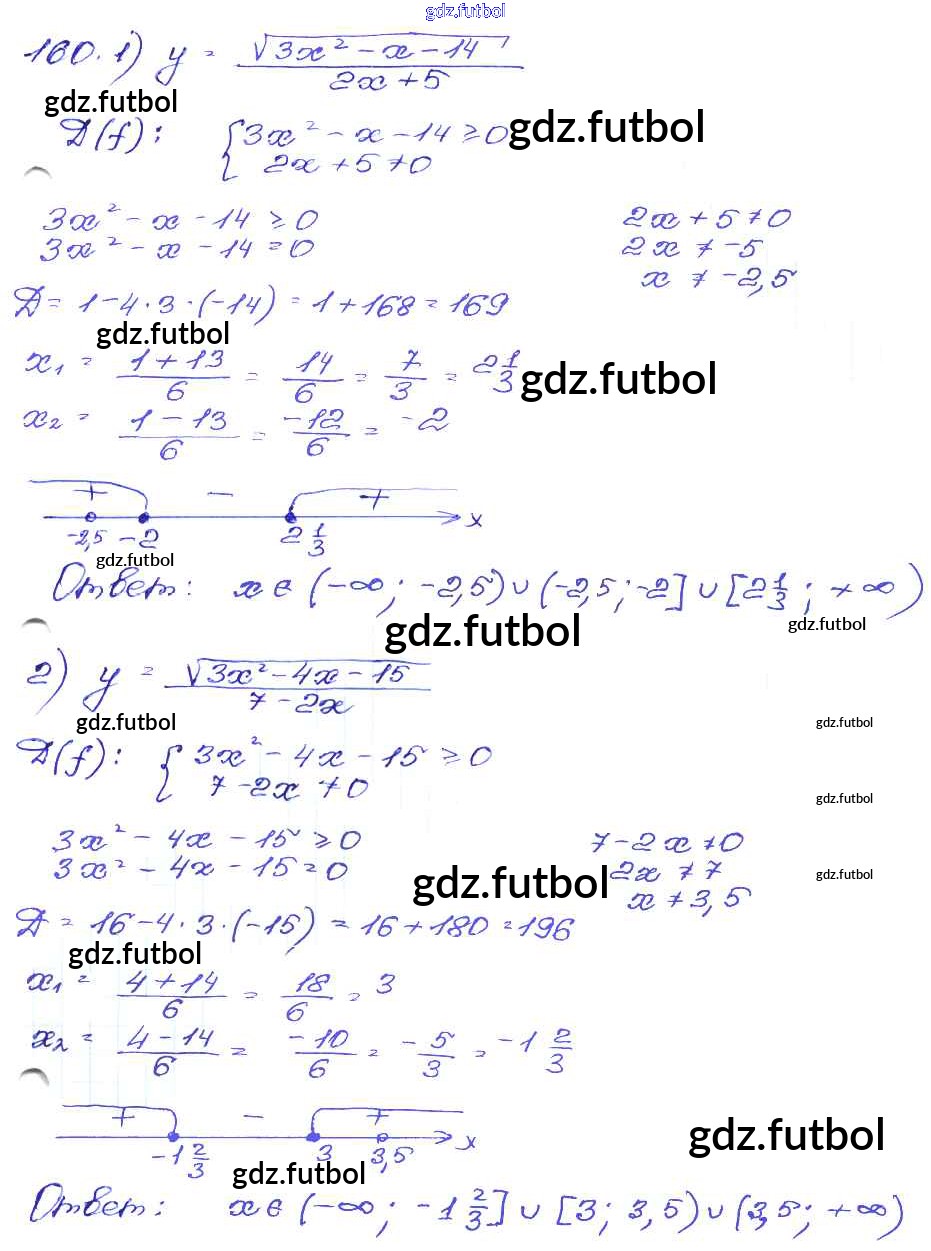 gdz.futbol
160. 1) y = √(3x² - x - 14) / (2x + 5)
gdz.futbol
D(f): { 3x² - x - 14 ≥ 0 gdz.futbol
2x + 5 ≠ 0
3x² - x - 14 ≥ 0 2x + 5 ≠ 0
3x² - x - 14 = 0 2x ≠ -5
x ≠ -2,5
D = 1 - 4 · 3 · (-14) = 1 + 168 = 169
gdz.futbol
x₁ = (1 + 13)/6 = 14/6 = 7/3 = 2 1/3 gdz.futbol
x₂ = (1 - 13)/6 = -12/6 = -2
+ - + x
-2,5 -2 2 1/3
gdz.futbol
Ответ: x ∈ (-∞; -2,5) ∪ (-2,5; -2] ∪ [2 1/3; +∞)
gdz.futbol gdz.futbol
2) y = √(3x² - 4x - 15) / (7 - 2x)
gdz.futbol gdz.futbol
D(f): { 3x² - 4x - 15 ≥ 0
7 - 2x ≠ 0 gdz.futbol
3x² - 4x - 15 ≥ 0 7 - 2x ≠ 0
3x² - 4x - 15 = 0 gdz.futbol 2x ≠ 7 gdz.futbol
x ≠ 3,5
D = 16 - 4 · 3 · (-15) = 16 + 180 = 196
gdz.futbol
x₁ = (4 + 14)/6 = 18/6 = 3
x₂ = (4 - 14)/6 = -10/6 = -5/3 = -1 2/3
+ - + x gdz.futbol
-1 2/3 3 3,5
gdz.futbol
Ответ: x ∈ (-∞; -1 2/3] ∪ [3; 3,5) ∪ (3,5; +∞)